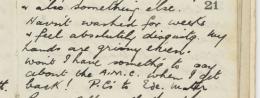 & also something else. 21
Havn't washed for weeks
& feel absolutely disgustg. My
hands are grimy even.
Wont I have somethg to say
about the A.M.C. when I get
back! to